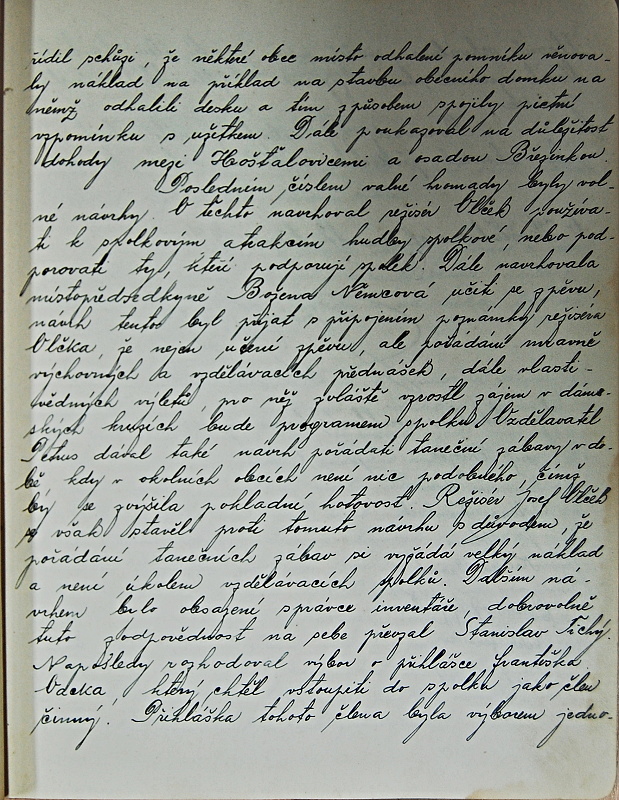 řídil schůzi, že některé obce místo odhalení pomníku věnova-
ly náklad na příklad na stavbu obecního domku na
němž odhalili desku a tím způsobem spojily pietní
vzpomínku s užitkem. Dále poukazoval na důležitost
dohody mezi Hošťalovicemi a osadou Březinkou.
Posledním číslem valné hromady byly vol-
né návrhy. O těchto navrhoval režisér Vlček používa-
ti k spolkovým atrakcím hudby spolkové, nebo pod-
porovati ty, kteří podporují spolek. Dále navrhovala
místopředsedkyně Božena Němcová učiti se zpěvu,
návrh tento byl přijat s připojením poznámky režiséra
Vlčka, že nejen učení zpěvu, ale pořádání mravně
výchovných a vzdělávacích přednášek, dále vlasti-
vědných výletů, pro něž zvláště vzrostl zájem v dám-
ských kruzích bude programem spolku. Vzdělavatel
Petrus dával také návrh pořádati taneční zábavy v do-
bě kdy v okolních obcích není nic podobného, čímž
by se zvýšila pokladní hotovost. Režisér Josef Vlček
se však stavěl proti tomuto návrhu s důvodem, že
pořádání tanečních zábav si vyžádá velký náklad
a není úkolem vzdělávacích spolků. Dalším ná-
vrhem bylo obsazení správce inventáře, dobrovolně
tuto zodpovědnost na sebe převzal Stanislav Tichý.
Naposledy rozhodoval výbor o přihlášce Františka
který chtěl vstoupiti do spolku jako člen
činný. Přihláška tohoto člena byla výborem jedno-